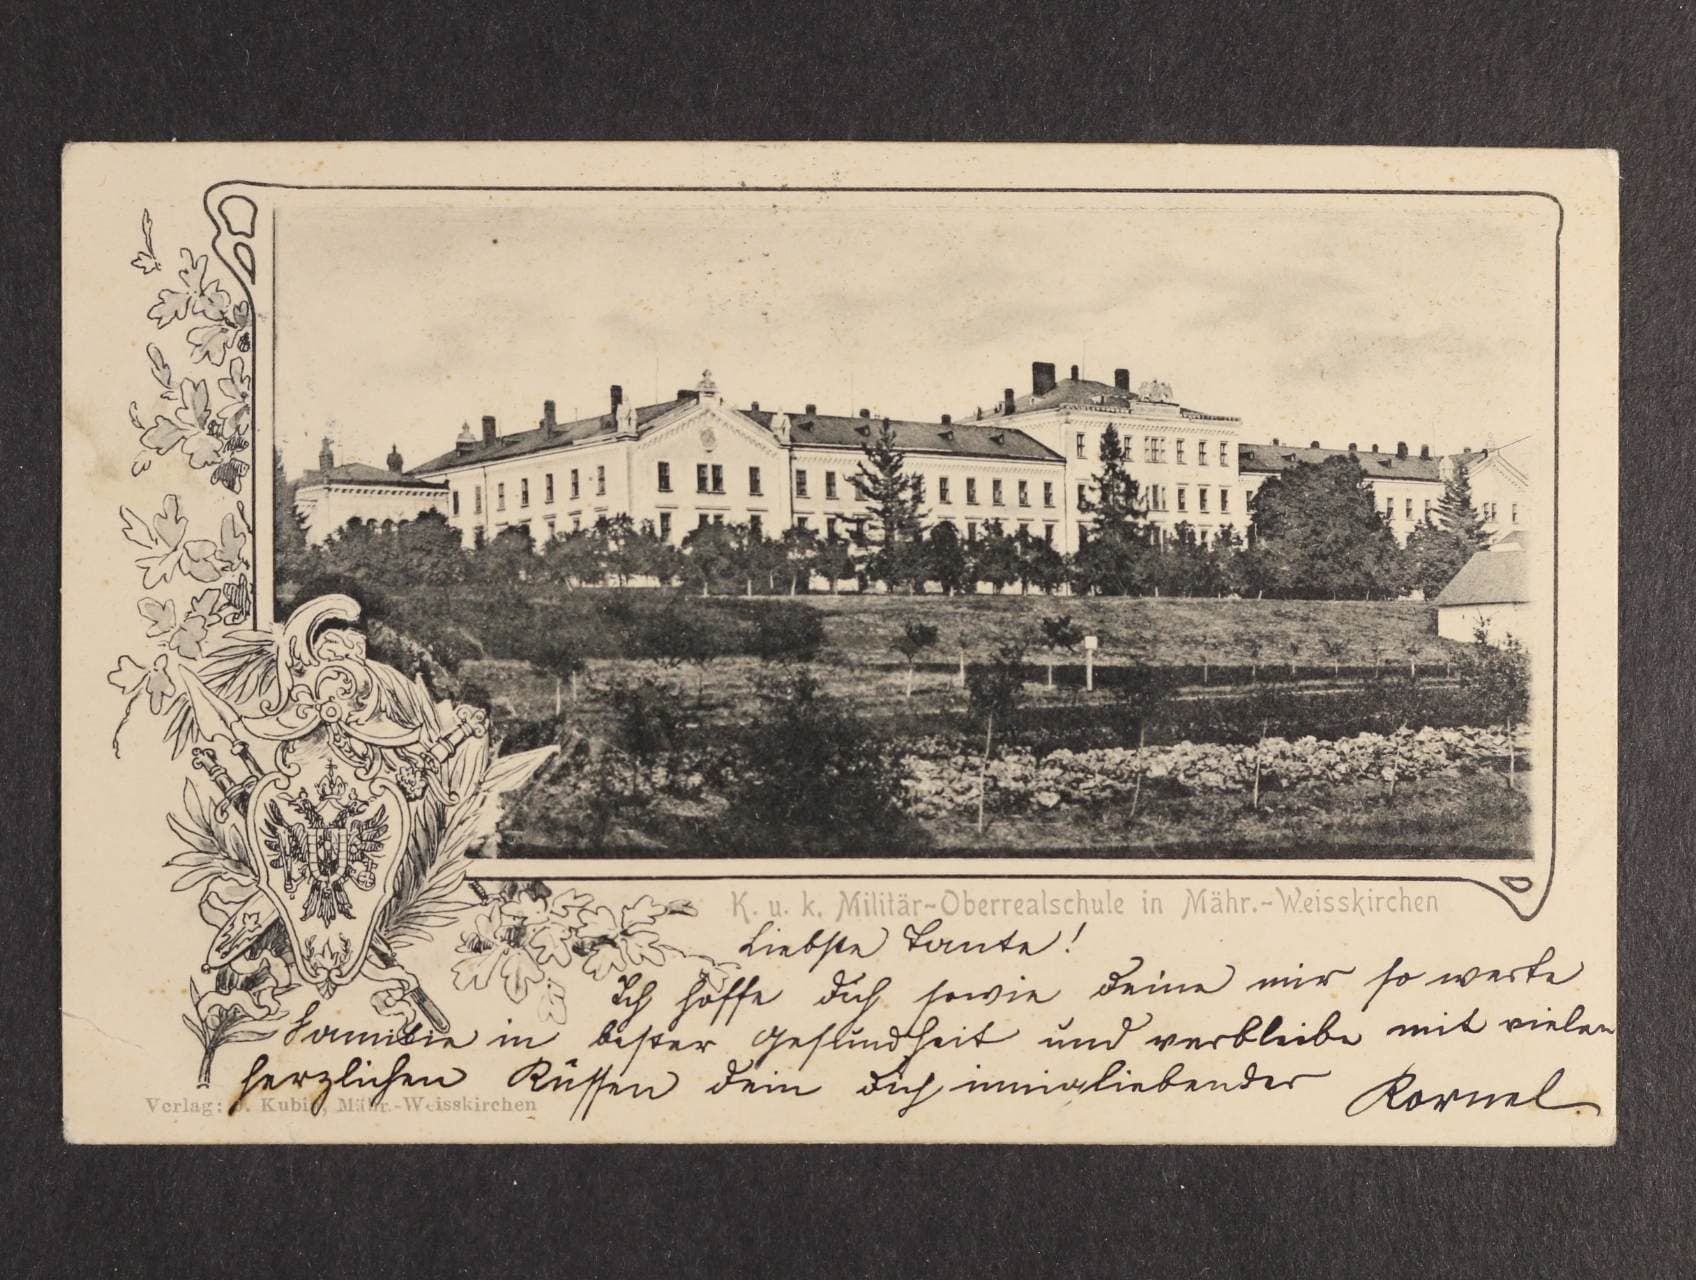 K. u. k. Militär-Oberrealschule in Mähr.-Weisskirchen
Liebste Tante!
Ich hoffe dich sowie deine mir so werte
Familie in bester Gesundheit und verbleibe mit vielen
herzlichen Küssen dein dich innigliebender
Kornel.
Verlag: J. Kubi, Mähr.-Weisskirchen